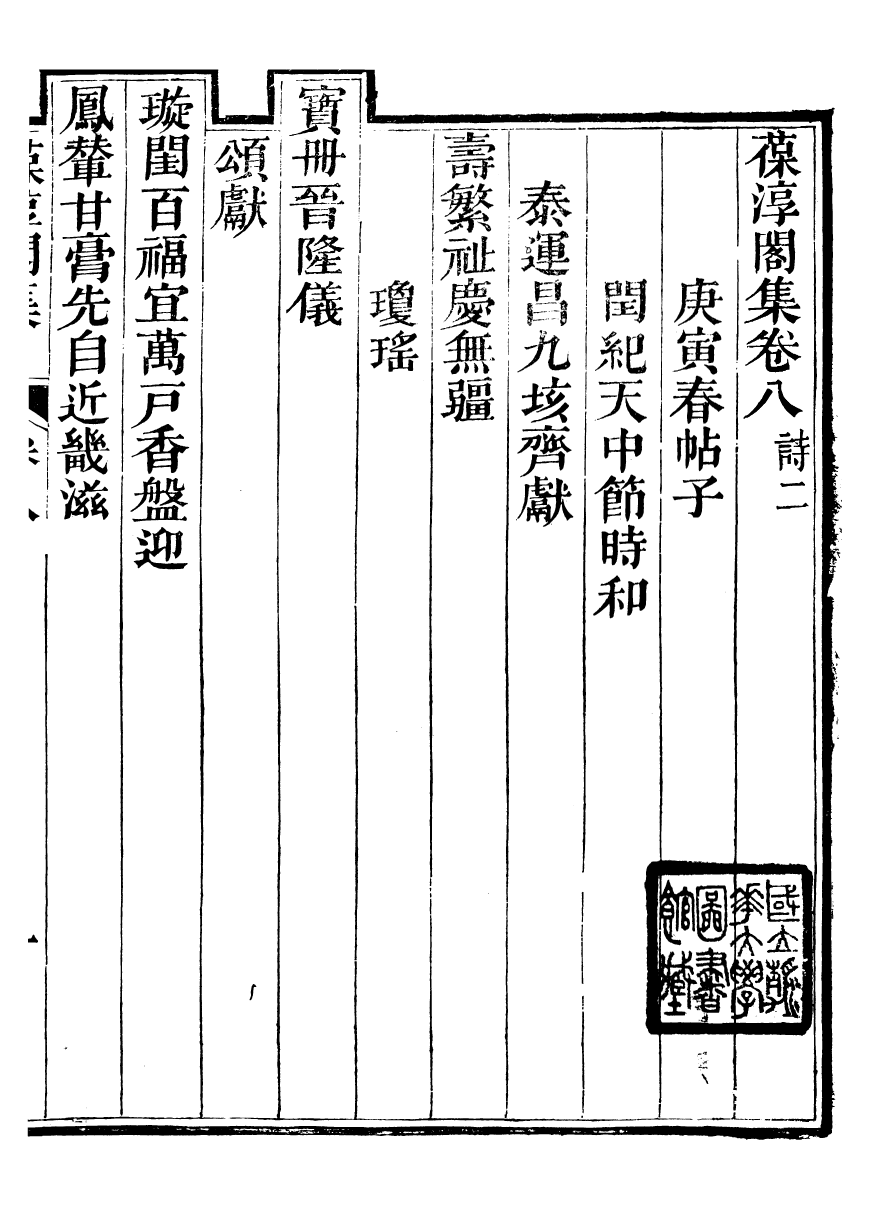 葆淳閣集卷八 詩二
庚寅春帖子
閏紀天中節時和
泰運昌九垓齊獻
壽繁祉慶無疆
瓊瑤
寶冊晉隆儀
頌獻
璇閨百福宜萬戸香盤迎
鳳輦甘膏先自近畿滋
葆淳閣集 卷八 一
國立清華大學圖書館藏